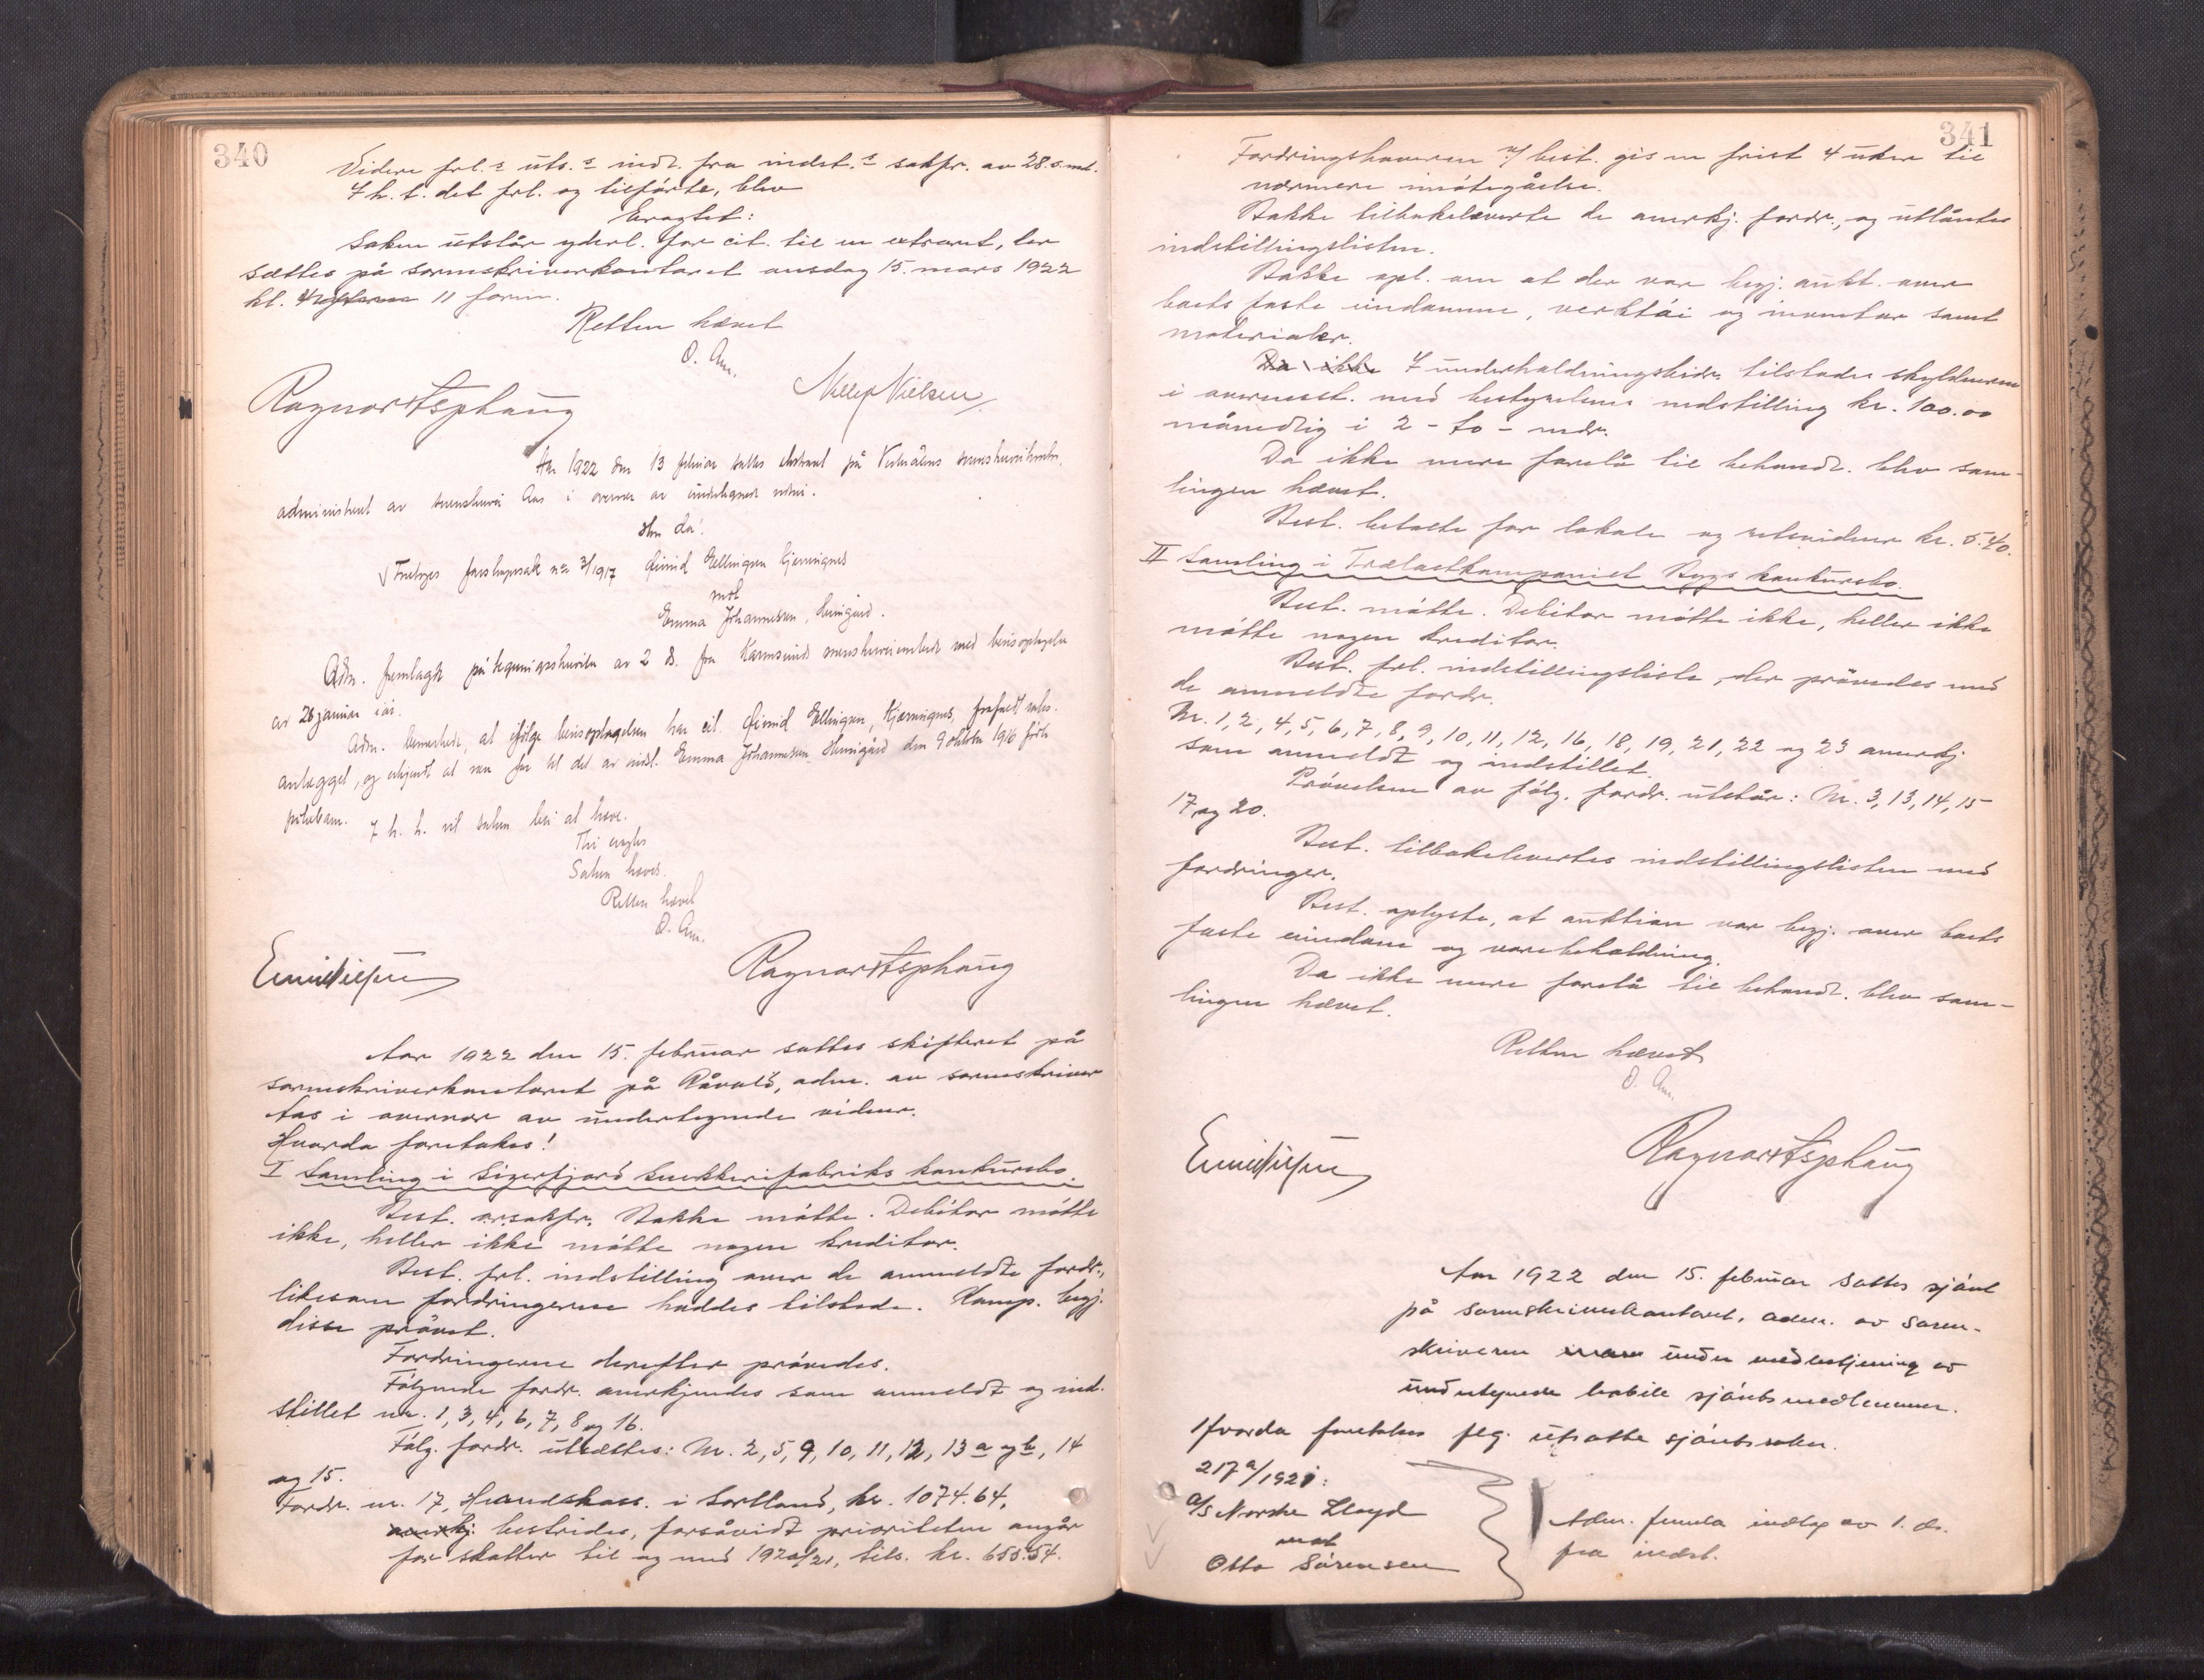 340
Videre frl. s uts. s indl. fra indst. s sakfr. av 28. s. md.
I h. t. det frl. og tilførte, blev
Eragtet:
Saken utstår yderl. for cit. til en extraret, der
sættes på sorenskriverkontoret onsdag 15. mars 1922
kl. 11 form.
Retten hævet
O. Aas.
Ragnar Asphaug
Nielsen
Aar 1922 den 13 februar sattes ekstraret på Vesterålens sorenskriverkontor,
administrert av sorenskriver Aas i overvær av undertegnede vidner.
Hvor da:
Foretoges farskapssak nr. 3/1917 Eivind Ellingsen Kjerringnes
mot
Emma Johannesen, Hunigård.
Adm. fremlagde påtegningsskrivelse av 2 ds. fra Karmsund sorenskriverembede med bevisoptagelse
av 26 januar iår.
Adm. bemerkede, at ifølge bevisoptagelsen har cit. Eivind Ellingsen, Kjerringnes, frafaldt saks-
anlægget, og erkjendt at være far til det av indst. Emma Johannesen Hunigård den 9 oktober 1916 fødte
pikebarn. I h. h. vil saken bli at hæve.
Thi eragtes
Saken hæves.
Retten hævet
O. Aas.
Emil Nielsen
Ragnar Asphaug
Aar 1922 den 15. februar sattes skifteret på
sorenskriverkontoret på Råvold, adm. av sorenskriver
Aas i overvær av undertegnede vidner.
Hvorda foretokes!
I Samling i Sigerfjord Snekkerifabriks konkursbo.
Best. o.r.sakfr. Stakke møtte. Debitor møtte
ikke, heller ikke møtte nogen kreditor.
Best. frl. indstilling over de anmeldte fordr.,
likesom fordringerne haddes tilstede. Komp. begj.
disse prøvet.
Fordringerne derefter prøvedes.
Følgende fordr. anerkjendes som anmeldt og ind-
stillet nr. 1, 3, 4, 6, 7, 8 og 16.
Følg. fordr. utsættes: Nr. 2, 5, 9, 10, 11, 12, 13 a og b, 14
og 15.
Fordr. nr. 17, Herredskass. i Sortland, kr. 1074.64,
anerkj. bestrides, forsåvidt prioriteten angår
for skatter til og med 1920/21, tils. kr. 655.54.
341
Fordringshaveren v/ best. gis en frist 4 uker til
nærmere imøtegåelse.
Stakke tilbakeleverte de anerkj. fordr., og utlåntes
indstillingslisten.
Stakke opl. om at der var begj. aukt. over
boets faste eiendomme, verktøi og inventar samt
materialer.
Da ikke I underholdningsbidr. tilstodes skyldneren
i overensst. med bestyrelsens indstilling kr. 100.00
månedlig i 2 - to - mdr.
Da ikke mere forelå til behandl. blev sam-
lingen hævet.
Best. betalte for lokale og retsvidner kr. 5.40.
II Samling i Trælastkompaniet Bygs konkursbo.
Best. møtte. Debitor møtte ikke, heller ikke
møtte nogen kreditor.
Best. frl. indstillingsliste, der prøvedes med
de anmeldte fordr.
Nr. 1, 2, 4, 5, 6, 7, 8, 9, 10, 11, 12, 16, 18, 19, 21, 22 og 23 anerkj.
som anmeldt og indstillet.
Prøvelsen av følg. fordr. utstår: Nr. 3, 13, 14, 15
17 og 20.
Best. tilbakelevertes indstillingslisten med
fordringer.
Best. oplyste, at auktion var begj. over boets
faste eiendom og varebeholdning.
Da ikke mere forelå til behandl. blev sam-
lingen hævet.
Retten hævet
O. Aas
Emil Nielsen
Ragnar Asphaug
Aar 1922 den 15. februar sattes sjøret
på sorenskriverkontoret, adm. av soren-
skriveren under medbetjening av
undertegnede habile sjøretsmedlemmer.
Hvorda foretokes flg. utsatte sjøretssaker.
217 a/1921:
A/S Norske Lloyd
mot
Otto Sørensen
Adm. freml. indlæg av 1. ds.
fra indst.